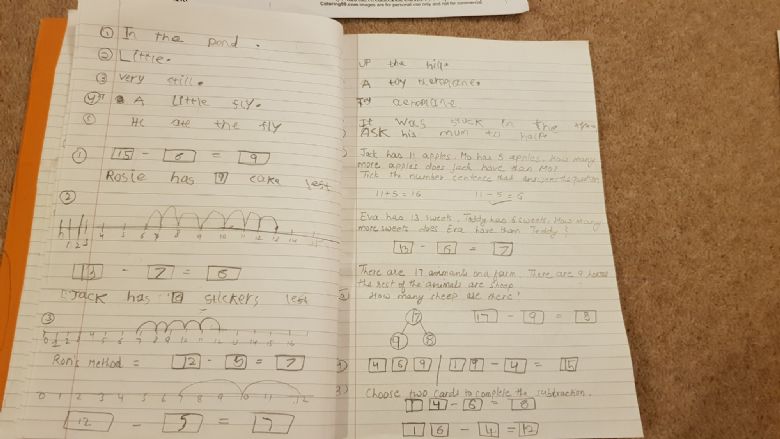 Catering88.com images are for personal use only and not for commercial
① In the pond.
② Little.
③ very still.
④ A little fly.
⑤ He ate the fly
① 15 - 6 = 9
Rosie has 9 cake left
②
1 2 3 4 5 6 7 8 9 10 11 12 13 14 15
13 - 7 = 6
Jack has 6 stickers left
③
0 1 2 3 4 5 6 7 8 9 10 11 12 13 14 15 16
Ron's method = 12 - 5 = 7
0 1 2 3 4 5 6 7 8 9 10 11 12
12 - 5 = 7
UP the hill.
A toy aeroplane.
Toy aeroplane
It was stuck in the
ASK his mum to help
Jack has 11 apples. Mo has 5 apples. How many
more apples does Jack have than Mo?
Tick the number sentence that answers the question
11+5=16 11-5=6
Eva has 13 sweets. Teddy has 6 sweets. How many
more sweets does Eva have than Teddy?
13 - 6 = 7
There are 17 ammants on a farm. There are 9 horses
the rest of the animals are sheep.
How many sheep are there?
17 17 - 9 = 8
9 8
4 6 9 19 - 4 = 15
Choose two cards to complete the subtraction.
1 4 - 6 = 8
1 6 - 4 = 12